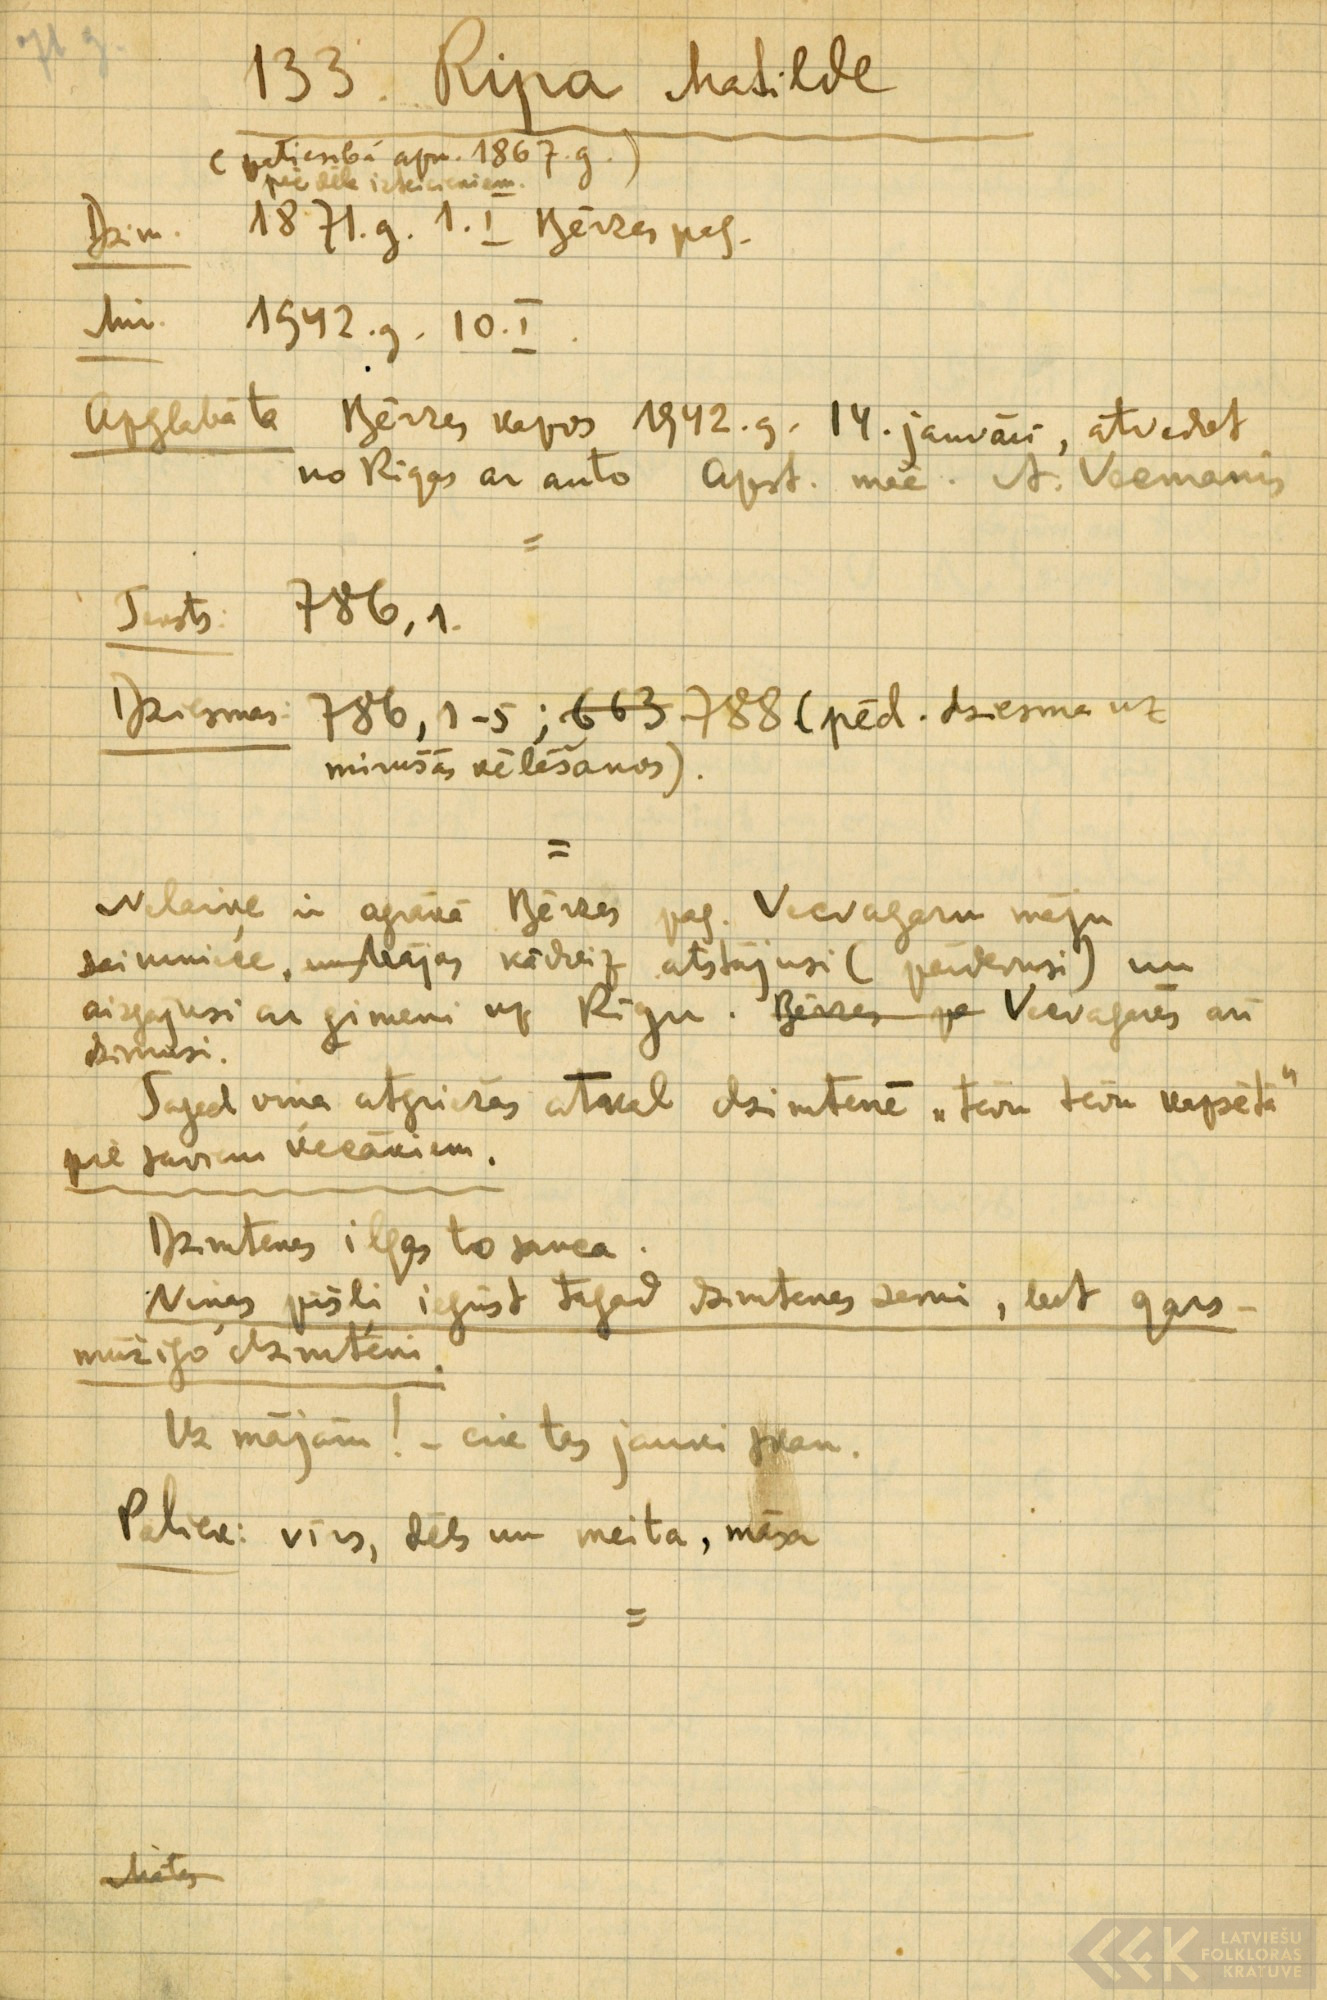 71 g.
133. Ripa Matilde
(patiesībā apm. 1867.g.)
pēc dēla izteicieniem.
Dzim. 1871.g. 1.I Bērzes pag.
Mir. 1942.g. 10.I.
Apglabāta Bērzes kapos 1942.g. 14. janvārī, atvedot
no Rīgas ar auto Apst. māc. A. Veemanis
=
Teksts: 786,1.
Dziesmas: 786,1-5; 663 788 (pēd. dziesma uz
mirušās vēlēšanos).
=
Nelaiķe ir agrākā Bērzes pag. Vecvagaru māju
saimniece, un Mājas kādreiz atstājusi (pārdevusi) un
aizgājusi ar ģimeni uz Rīgu. Bērzes pa Vecvagarēs arī
dzimusi.
Tagad viņa atgriežas atkal dzimtenē „tēvu tēvu kapsētā"
pie saviem vecākiem.
Dzimtenes ilgas to sauca.
Viņas pīšļi iegūst tagad dzimtenes zemi, bet gars -
mūžīgo dzimteni.
Uz mājām! - cik tas jauki skan.
Paliek: vīrs, dēls un meita, māsa
=
Mātes
LATVIEŠU
FOLKLORAS
KRATUVE